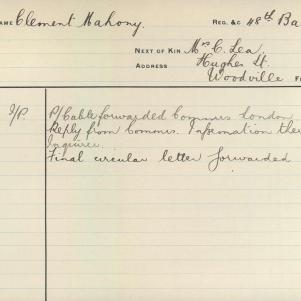 NAME Clement Mahony. REG. &C 48th Ba
NEXT OF KIN Mrs C. Lea.
ADDRESS Hughes St.
Woodville
I/P. P/Cable forwarded Commrs London
Reply from Commrs. Information
Inquirer.
Final circular letter forwarded